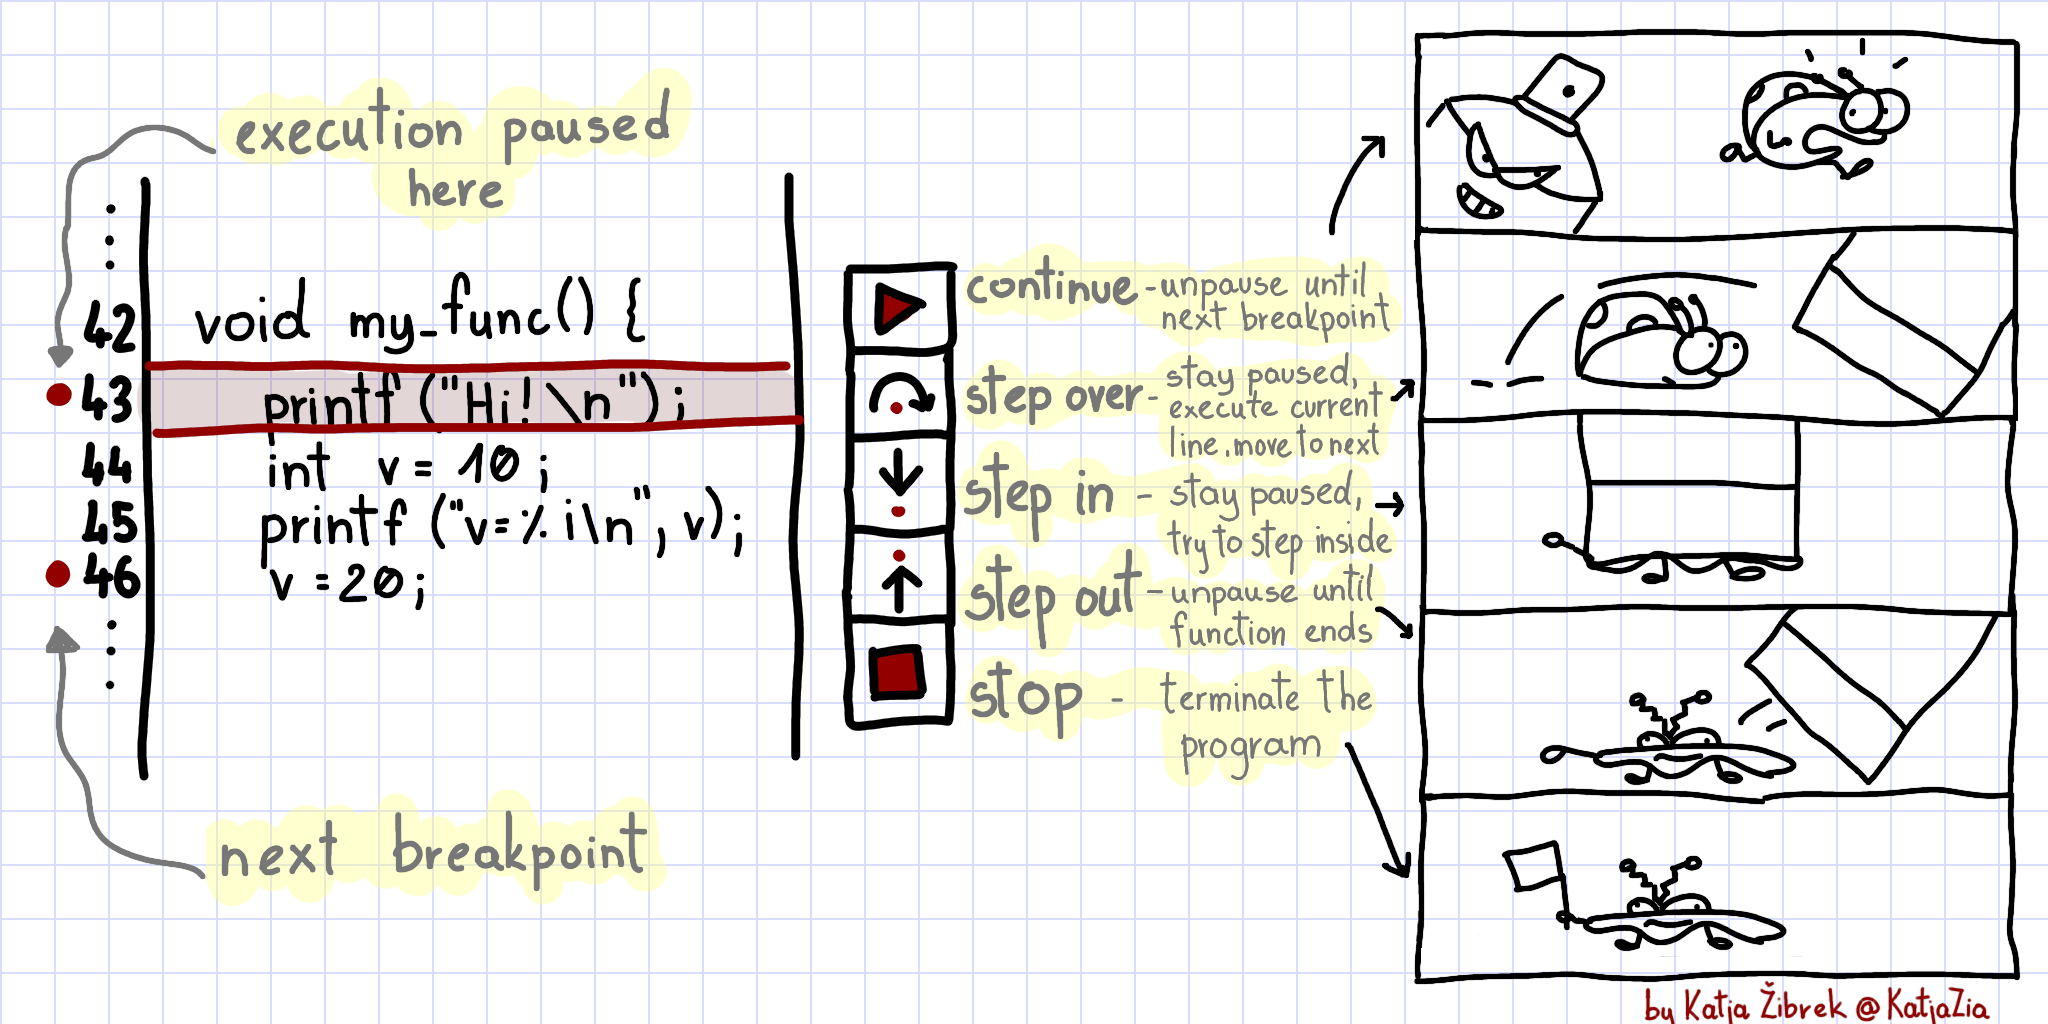 execution paused
here
42 void my_func() {
43 printf ("Hi! \n");
44 int v = 10;
45 printf ("v=%i\n", v);
46 v = 20;
next breakpoint
continue - unpause until
next breakpoint
step over - stay paused,
execute current
line, move to next
step in - stay paused,
try to step inside
step out - unpause until
function ends
stop - terminate the
program
by Katja Žibrek @KatjaZia